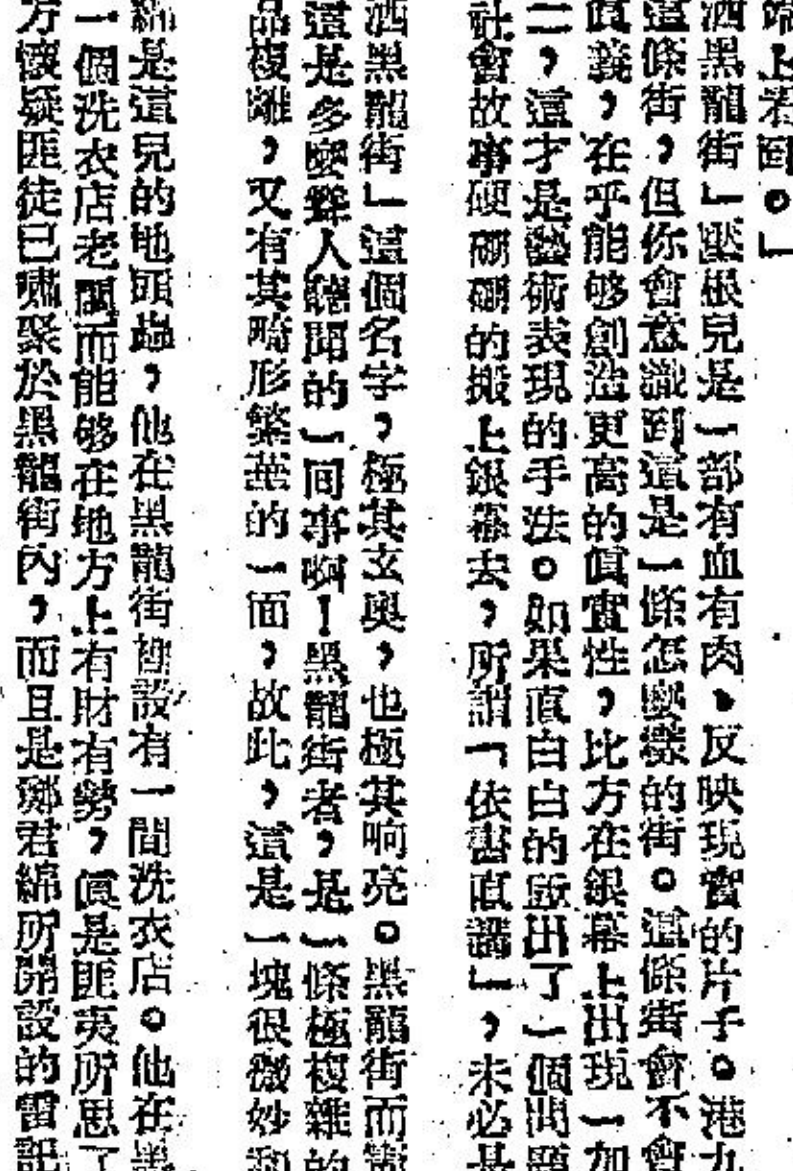 端上看到。」
洒黑龍街」壓根兒是一部有血有肉、反映現實的片子。港九
這條街,但你會意識到這是一條怎麼樣的街。這條街會不會
真義,在乎能够創造更高的眞實性,比方在銀幕上出現一加
二,這才是藝術表現的手法。如果直白白的敲出了一個問題
社會故事硬硼硼的搬上銀幕去,所謂「依書直講」,未必是
洒黑龍街」這個名字,極其玄奥,也極其响亮。黑龍街而
這是多麼聳人聽聞的一回事啊!黑龍街者,是一條極複雜的
品複雜,又有其畸形繁華的一面,故此,這是一塊很微妙和
綿是這兒的地頭蟲,他在黑龍街裡設有一間洗衣店。他在黑
一個洗衣店老闆而能够在地方上有財有勢,眞是匪夷所思了
方懷疑匪徒已嘯聚於黑龍街內,而且是鄧君綿所開設的雷記